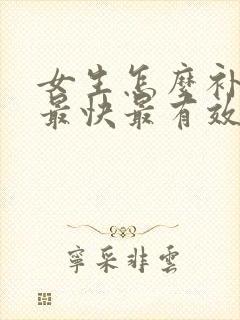 女生怎麼补
最快最有效
寧采非雲